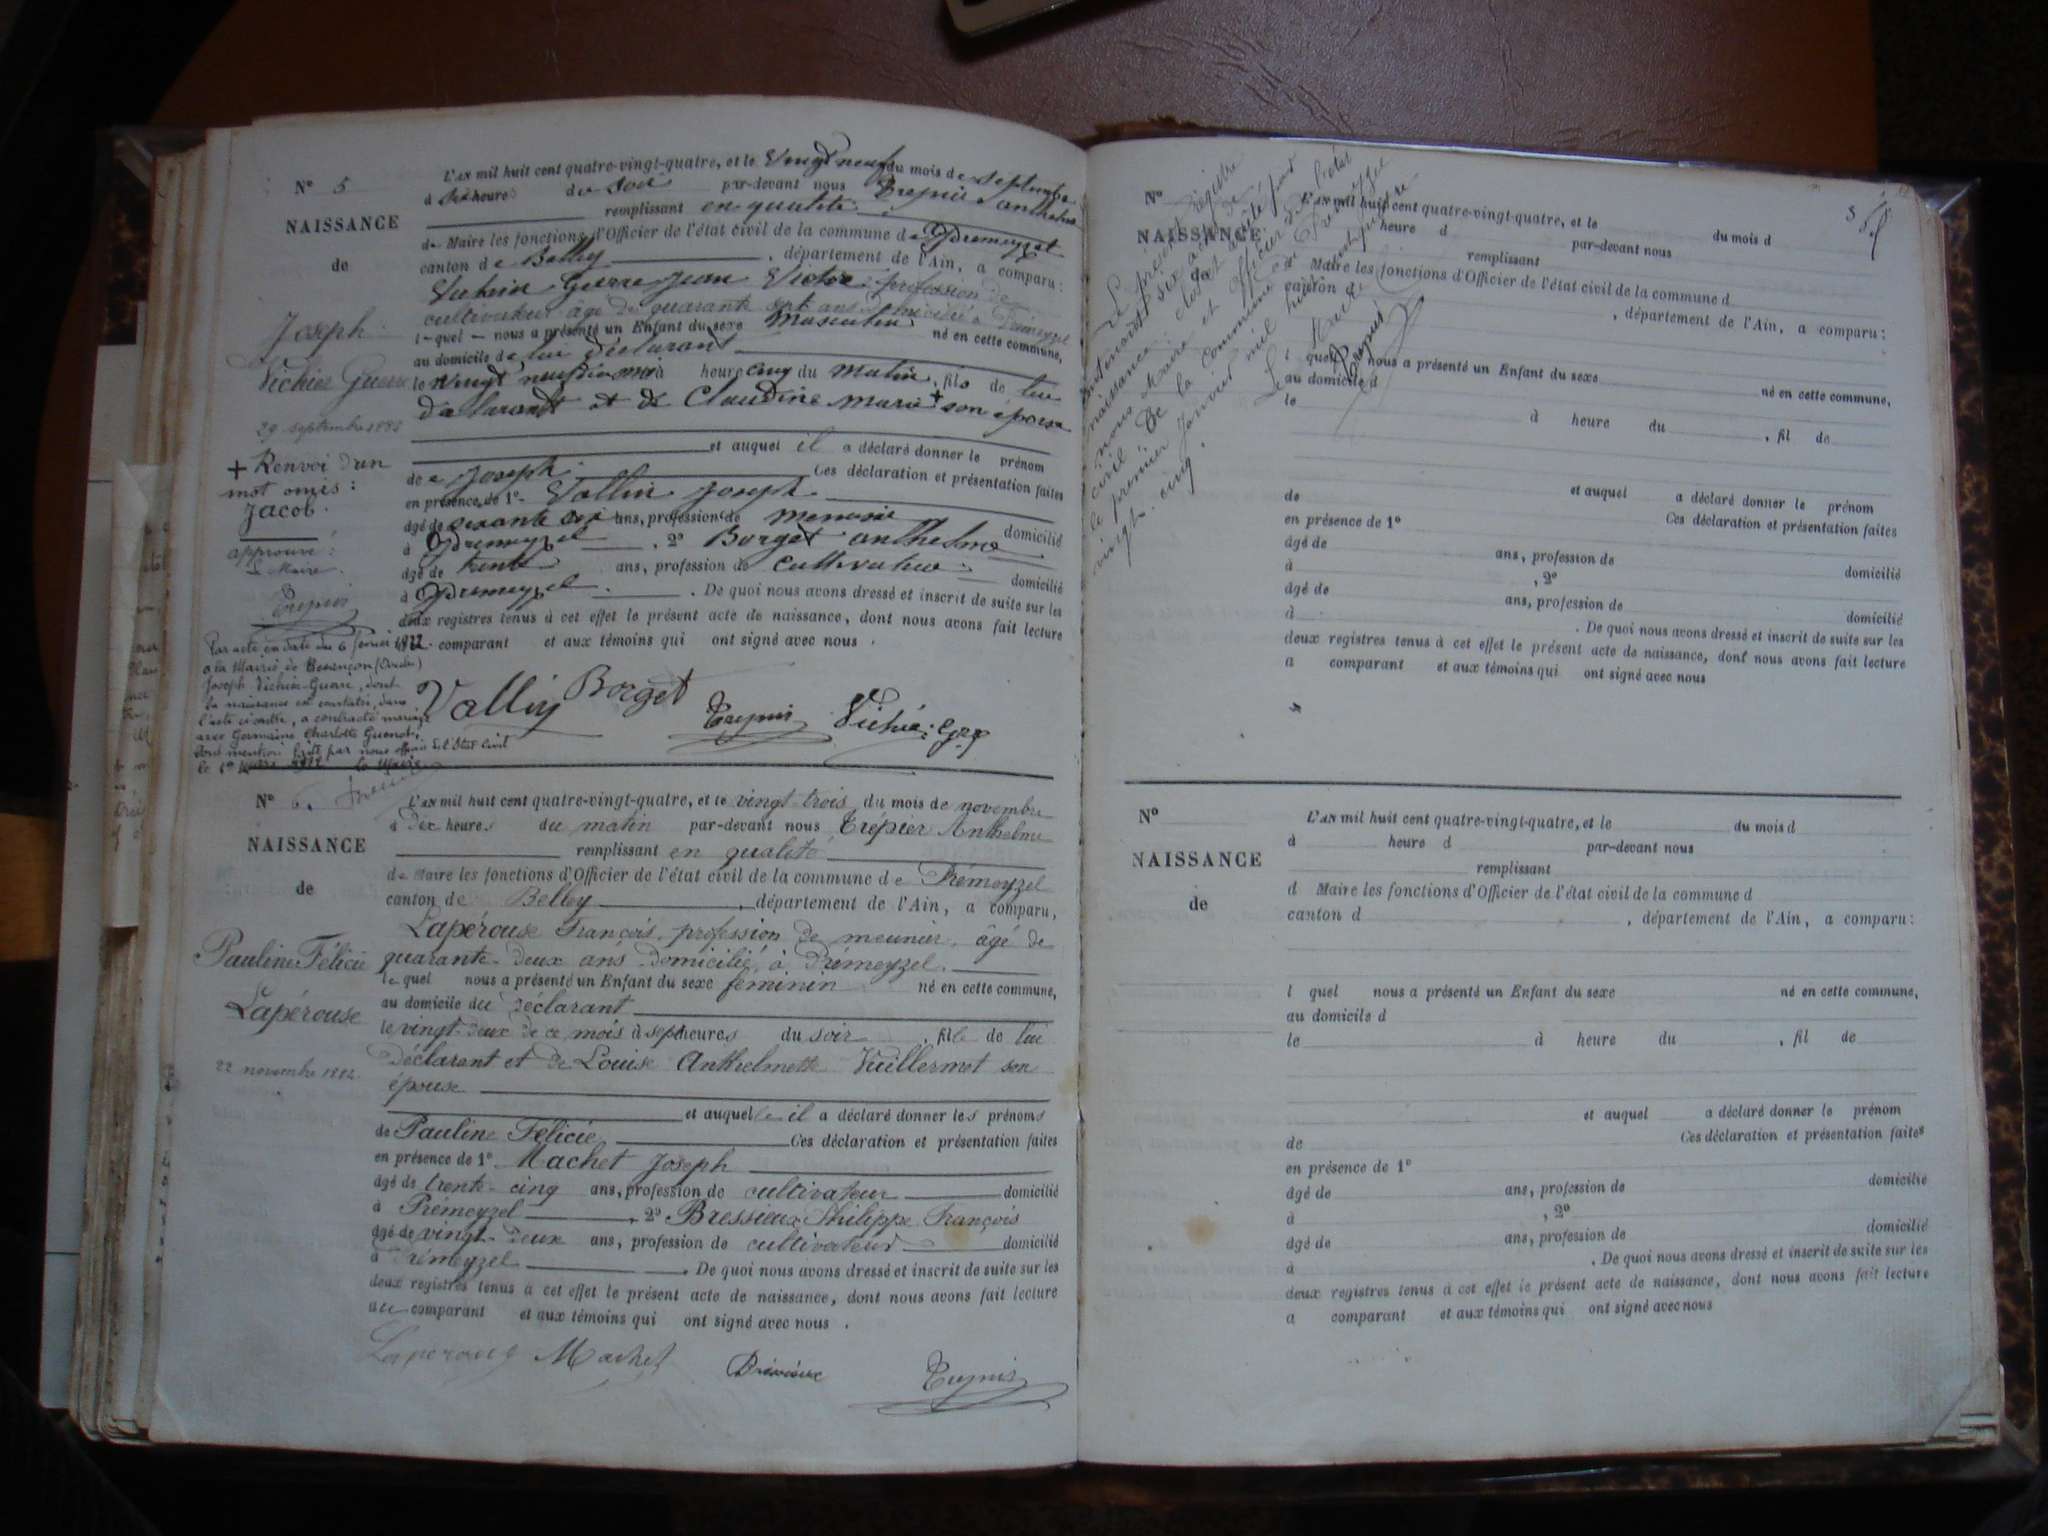 N° 5
NAISSANCE
de
Joseph
Vichier Guerre
29 septembre 1884
+ Renvoi d'un
mot omis :
Jacob.
approuvé :
Le Maire.
Trepier
Par acte en date du 6 février 1922
à la Mairie de Besançon (Doubs)
Joseph Vichier-Guerre, dont
la naissance est constatée dans
l'acte ci-contre, a contracté mariage
avec Germaine Charlotte Guenot,
dont mention faite par nous officier de l'Etat Civil
le 1er 1922 le Maire
L'AN mil huit cent quatre-vingt-quatre, et le vingt neuf du mois de septembre
à six heures du soir par-devant nous Trepier anthelme
remplissant en qualité
de Maire les fonctions d'Officier de l'état civil de la commune de Premeyzel
canton de Belley , département de l'Ain, a comparu :
Vichier Guerre Jean Victor profession de
cultivateur âgé de quarante sept ans domicilié à Prémeyzel
lequel nous a présenté un Enfant du sexe masculin né en cette commune,
au domicile de lui déclarant
le vingt neuf à heure cinq du matin, fils de lui
déclarant et de Claudine marie + son épouse
et auquel il a déclaré donner le prénom
de Joseph Ces déclaration et présentation faites
en présence de 1° Vallin Joseph
âgé de soixante six ans, profession de menuisier domicilié
à Premeyzel , 2° Borget anthelme
âgé de trente ans, profession de cultivateur domicilié
à Premeyzel . De quoi nous avons dressé et inscrit de suite sur les
deux registres tenus à cet effet le présent acte de naissance, dont nous avons fait lecture
comparant et aux témoins qui ont signé avec nous .
Vallin Borget Trepier Vichier
N° 6.
NAISSANCE
de
Pauline Félicie
Lapérouse
22 novembre 1884
L'AN mil huit cent quatre-vingt-quatre, et le vingt-trois du mois de novembre
à dix heures du matin par-devant nous Trépier Anthelme
remplissant en qualité
de Maire les fonctions d'Officier de l'état civil de la commune de Prémeyzel
canton de Belley , département de l'Ain, a comparu,
Lapérouse François, profession de meunier, âgé de
quarante-deux ans domicilié à Prémeyzel.
lequel nous a présenté un Enfant du sexe féminin né en cette commune,
au domicile du déclarant
le vingt-deux de ce mois à sept heures du soir , fille de lui
déclarant et de Louise Anthelmette Vuillermet son
épouse
et auquelle il a déclaré donner les prénoms
de Pauline Félicie Ces déclaration et présentation faites
en présence de 1° Machet Joseph
âgé de trente-cinq ans, profession de cultivateur domicilié
à Prémeyzel , 2° Bressieux Philippe François
âgé de vingt-deux ans, profession de cultivateur domicilié
à Prémeyzel . De quoi nous avons dressé et inscrit de suite sur les
deux registres tenus à cet effet le présent acte de naissance, dont nous avons fait lecture
au comparant et aux témoins qui ont signé avec nous .
Laperouse Machet Trepier
Le présent registre
contenant six actes de
naissance, clos et arrêté par
nous Maire et officier de l'état
civil de la Commune de Premeyzel
le premier Janvier mil huit cent quatre
vingt-cinq.
Le Maire
Trepier
N°
NAISSANCE
de
L'AN mil huit cent quatre-vingt-quatre, et le du mois d
heure d par-devant nous
remplissant
d Maire les fonctions d'Officier de l'état civil de la commune d
canton d , département de l'Ain, a comparu :
l quel nous a présenté un Enfant du sexe né en cette commune,
au domicile d
le à heure du , fil de
et auquel a déclaré donner le prénom
de Ces déclaration et présentation faites
en présence de 1°
âgé de ans, profession de domicilié
à , 2°
âgé de ans, profession de domicilié
à . De quoi nous avons dressé et inscrit de suite sur les
deux registres tenus à cet effet le présent acte de naissance, dont nous avons fait lecture
a comparant et aux témoins qui ont signé avec nous
N°
NAISSANCE
de
L'AN mil huit cent quatre-vingt-quatre, et le du mois d
à heure d par-devant nous
remplissant
d Maire les fonctions d'Officier de l'état civil de la commune d
canton d , département de l'Ain, a comparu :
l quel nous a présenté un Enfant du sexe né en cette commune,
au domicile d
le à heure du , fil de
et auquel a déclaré donner le prénom
de Ces déclaration et présentation faites
en présence de 1°
âgé de ans, profession de domicilié
à , 2°
âgé de ans, profession de domicilié
à . De quoi nous avons dressé et inscrit de suite sur les
deux registres tenus à cet effet le présent acte de naissance, dont nous avons fait lecture
a comparant et aux témoins qui ont signé avec nous